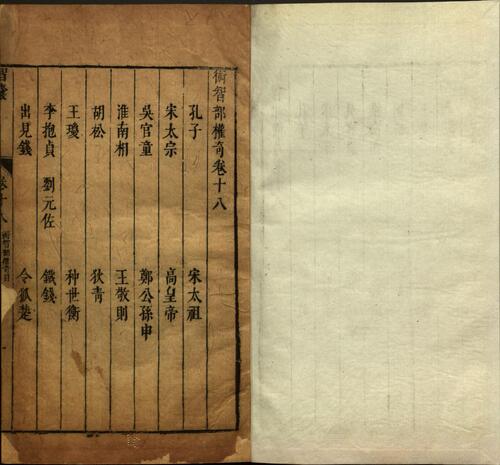 術智部權奇卷十八
孔子 宋太祖
宋太宗 高皇帝
吳官童 鄭公孫申
淮南相 王敬則
胡松 狄青
王瓊 种世衡
李抱貞 劉元佐 鐵錢
出見錢 令狐楚
智囊 卷十八 術智部權奇目